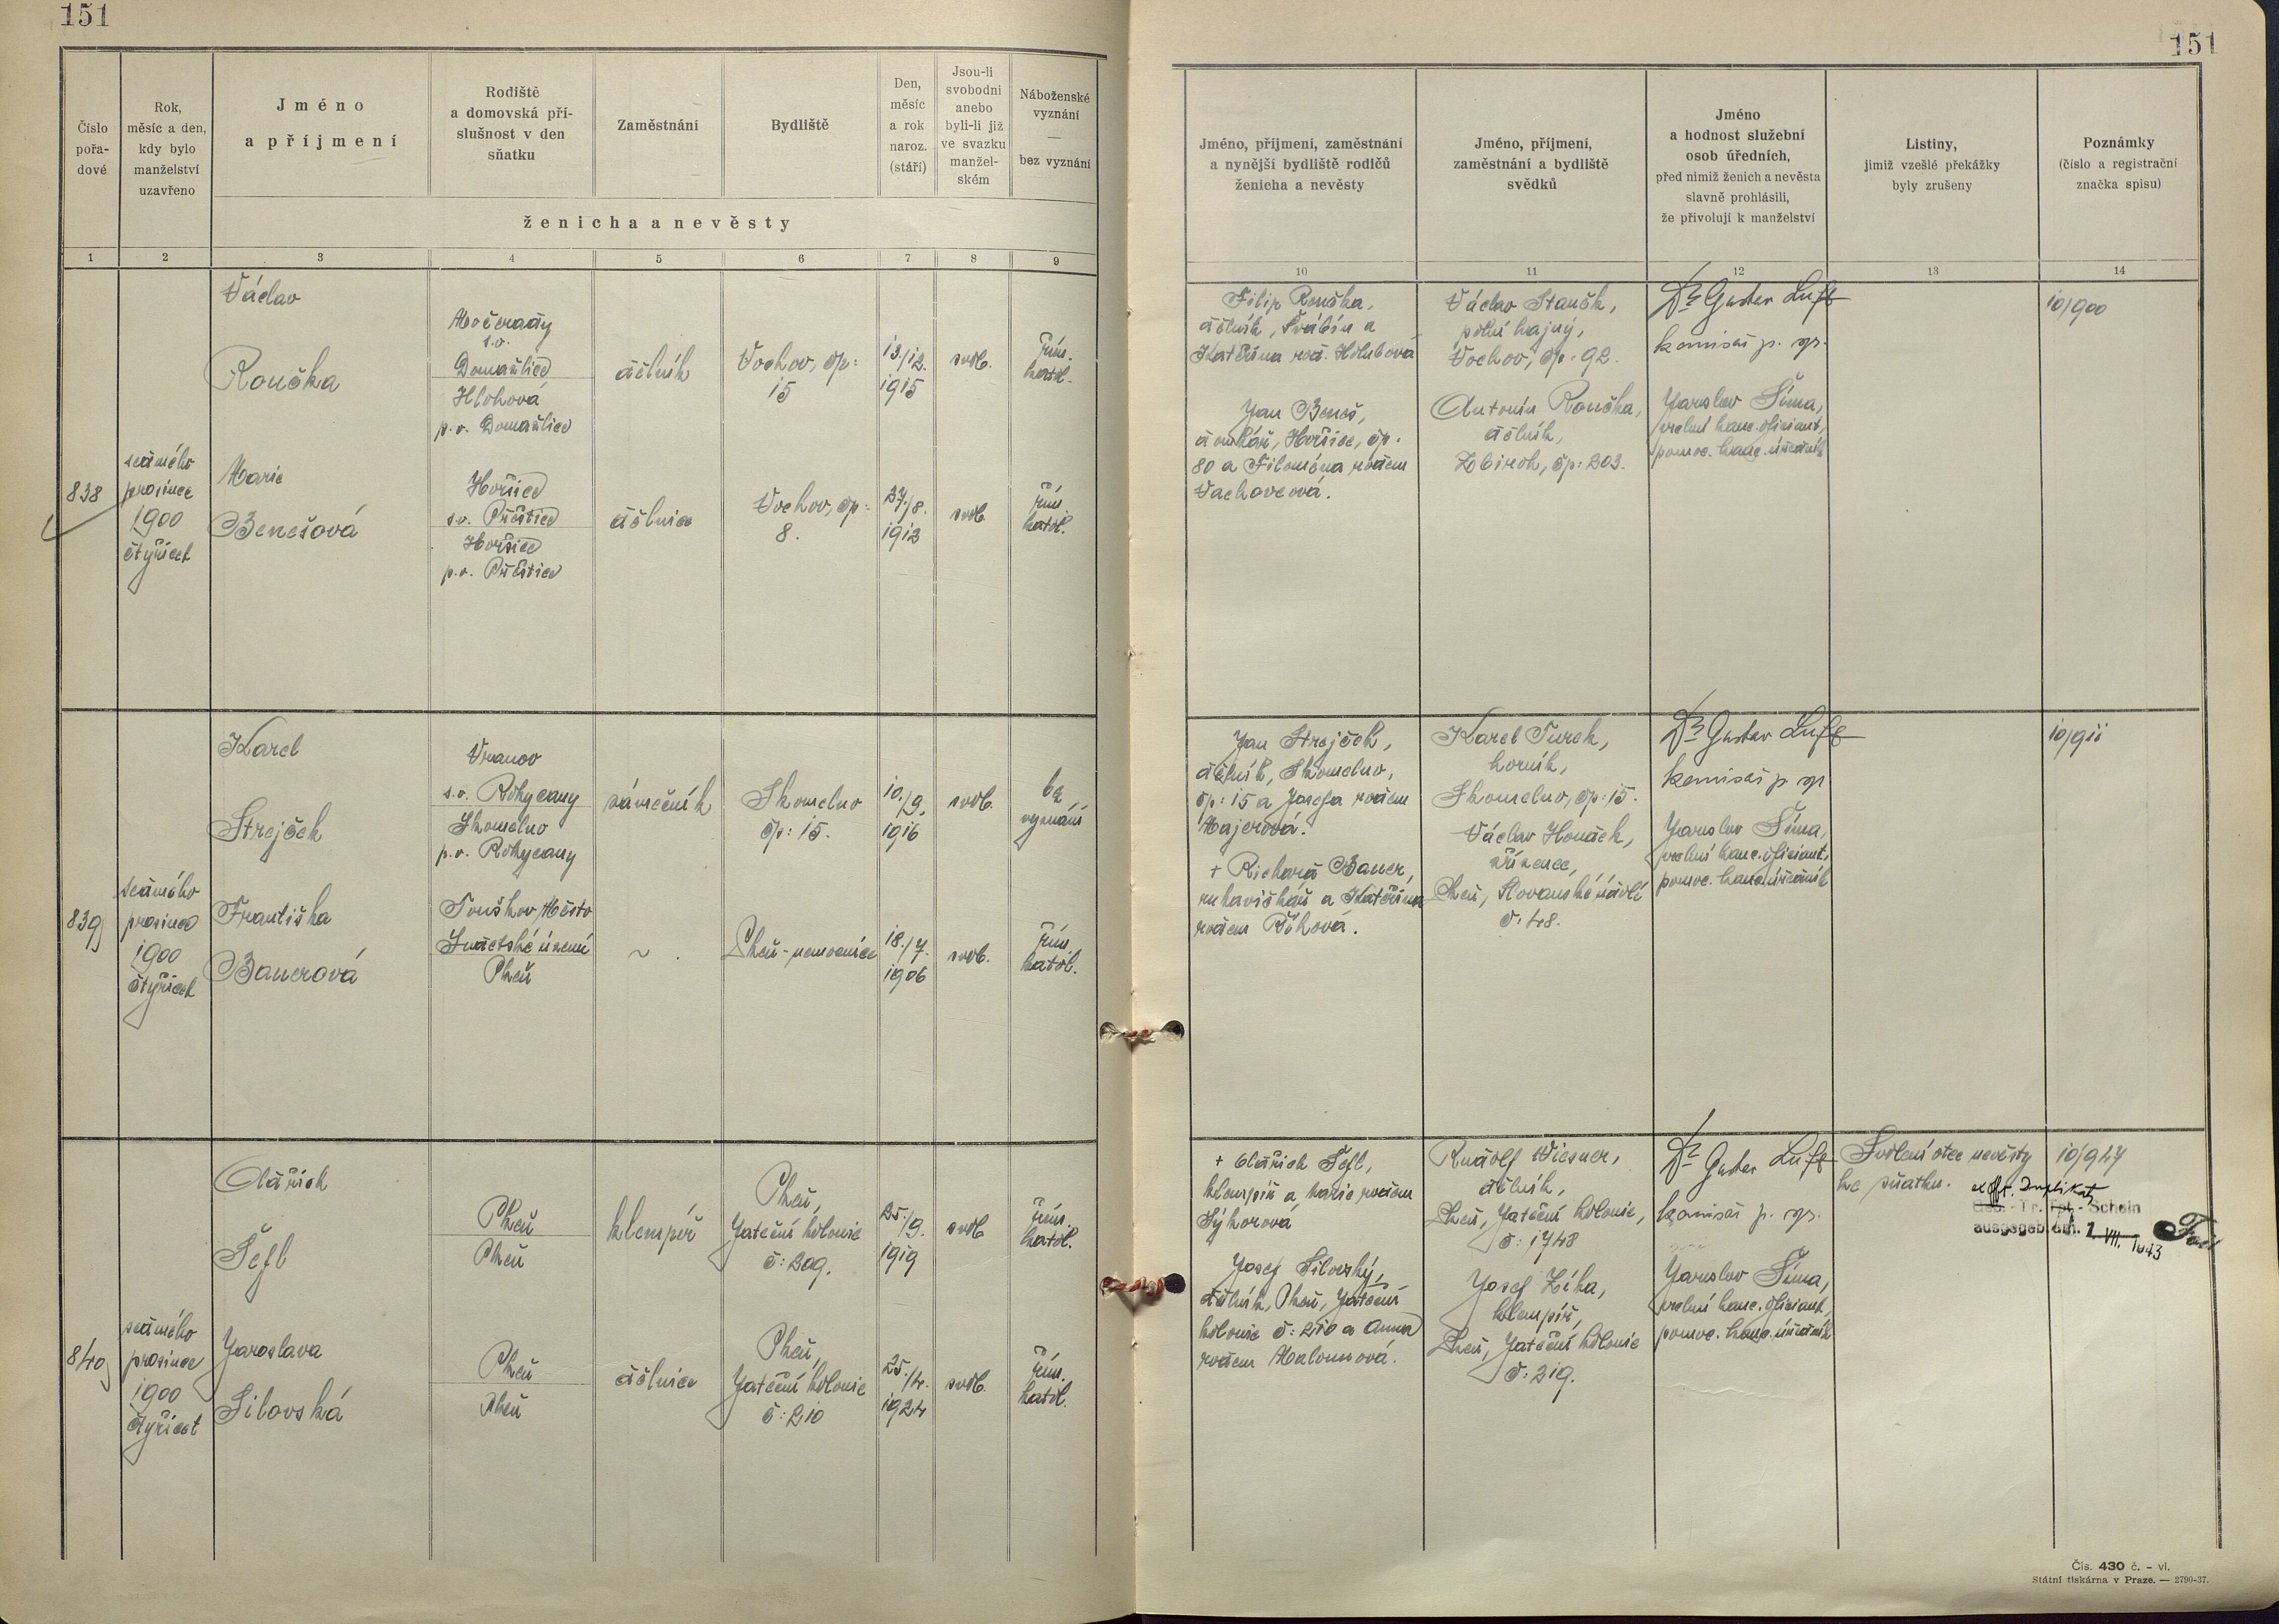 151
151
Číslo
pořa-
dové
Rok,
měsíc a den,
kdy bylo
manželství
uzavřeno
Jméno
a příjmení
Rodiště
a domovská pří-
slušnost v den
sňatku
Zaměstnání
Bydliště
Den,
měsíc
a rok
naroz.
(stáří)
Jsou-li
svobodni
anebo
byli-li již
ve svazku
manžel-
ském
Náboženské
vyznání
—
bez vyznání
ženicha a nevěsty
1 2 3 4 5 6 7 8 9
Jméno, příjmení, zaměstnání
a nynější bydliště rodičů
ženicha a nevěsty
Jméno, příjmení,
zaměstnání a bydliště
svědků
Jméno
a hodnost služební
osob úředních,
před nimiž ženich a nevěsta
slavně prohlásili,
že přivolují k manželství
Listiny,
jimiž vzešlé překážky
byly zrušeny
Poznámky
(číslo a registrační
značka spisu)
10 11 12 13 14
838
sedmého
prosince
1900
čtyřicet
Václav
Roučka
Močerady
s.o.
Domažlice
Hlohová
p.o. Domažlice
dělník
Vochov, čp:
15
13./12.
1915
svob.
řím.
katol.
Marie
Benešová
Horšice
s.o. Přeštice
Horšice
p.o. Přeštice
dělnice
Vochov, čp:
8.
27./8.
1912
svob.
řím.
katol.
Filip Roučka,
dělník, Švábín a
Kateřina roz. Holubová
Jan Beneš,
domkář, Horšice, čp.
80 a Filoména rodem
Vachovcová.
Václav Staněk,
polní hajný,
Vochov, čp: 92.
Antonín Roučka,
dělník,
Zbiroh, čp: 203.
Dr Gustav Luft
komisař p. sp.
Jaroslav Šíma,
vrchní kanc. oficiant,
pomoc. kanc. úředník
10/900
839
sedmého
prosince
1900
čtyřicet
Karel
Strejček
Vranov
s.o. Rokycany
Skomelno
p.o. Rokycany
zámečník
Skomelno
čp: 15.
10./9.
1916
svob.
bez
vyznání
Františka
Bauerová
Touškov, Město
Sudetské území
Plzeň
~
Plzeň-nemocnice
18./7.
1906
svob.
řím.
katol.
Jan Strejček,
dělník, Skomelno,
čp: 15 a Josefa rodem
Majerová.
+ Richard Bauer,
rukavičkář a Kateřina
rodem Říhová.
Karel Turek,
horník,
Skomelno, čp: 15.
Václav Houdek,
zřízenec,
Plzeň, Slovanské údolí
č: 48.
Dr Gustav Luft
komisař p. sp.
Jaroslav Šíma,
vrchní kanc. oficiant,
pomoc. kanc. úředník
10/911
840
sedmého
prosince
1900
čtyřicet
Oldřich
Šefl
Plzeň
Plzeň
klempíř
Plzeň,
Jateční kolonie
č: 209.
25./9.
1919
svob
řím.
katol.
Jaroslava
Silovská
Plzeň
Plzeň
dělnice
Plzeň,
Jateční kolonie
č: 210
25./4.
1924
svob.
řím.
katol.
+ Oldřich Šefl,
klempíř a Marie rodem
Sýkorová
Josef Silovský,
dělník, Plzeň, Jateční
kolonie č: 210 a Anna
rodem Malounová.
Rudolf Wiesner,
dělník,
Plzeň, Jateční kolonie,
č: 1748
Josef Zíka,
klempíř,
Plzeň, Jateční kolonie
č: 219.
Dr Gustav Luft
komisař p. sp.
Jaroslav Šíma,
vrchní kanc. oficiant,
pomoc. kanc. úředník
Svolení otce nevěsty
ke sňatku.
10/947
Duplikat
Geb.-Tr.-Tot.-Schein
ausgegeb. am. 1. VII. 1943
Čís. 430 č. – vl.
Státní tiskárna v Praze. — 2790-37.